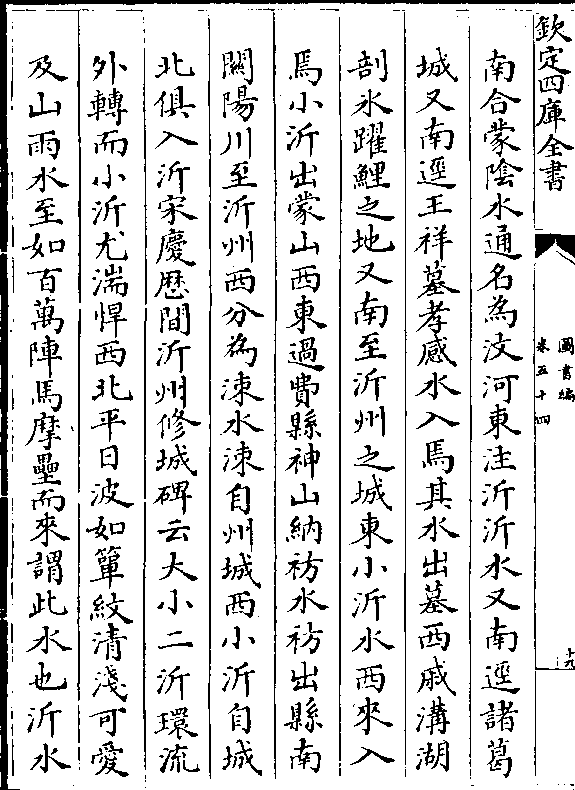 欽定四庫全書
圖書編
卷五十四
十九
南合蒙隂水通名為汶河東注沂沂水又南逕諸葛
城又南逕王祥墓孝感水入焉其水出墓西戚溝湖
剖氷躍鯉之地又南至沂州之城東小沂水西來入
焉小沂出蒙山西東過費縣神山納祊水祊出縣南
關陽川至沂州西分為涑水涑自州城西小沂自城
北俱入沂宋慶歴間沂州修城碑云大小二沂環流
外轉而小沂尤湍悍西北平日波如簟紋清淺可愛
及山雨水至如百萬陣馬摩壘而來謂此水也沂水